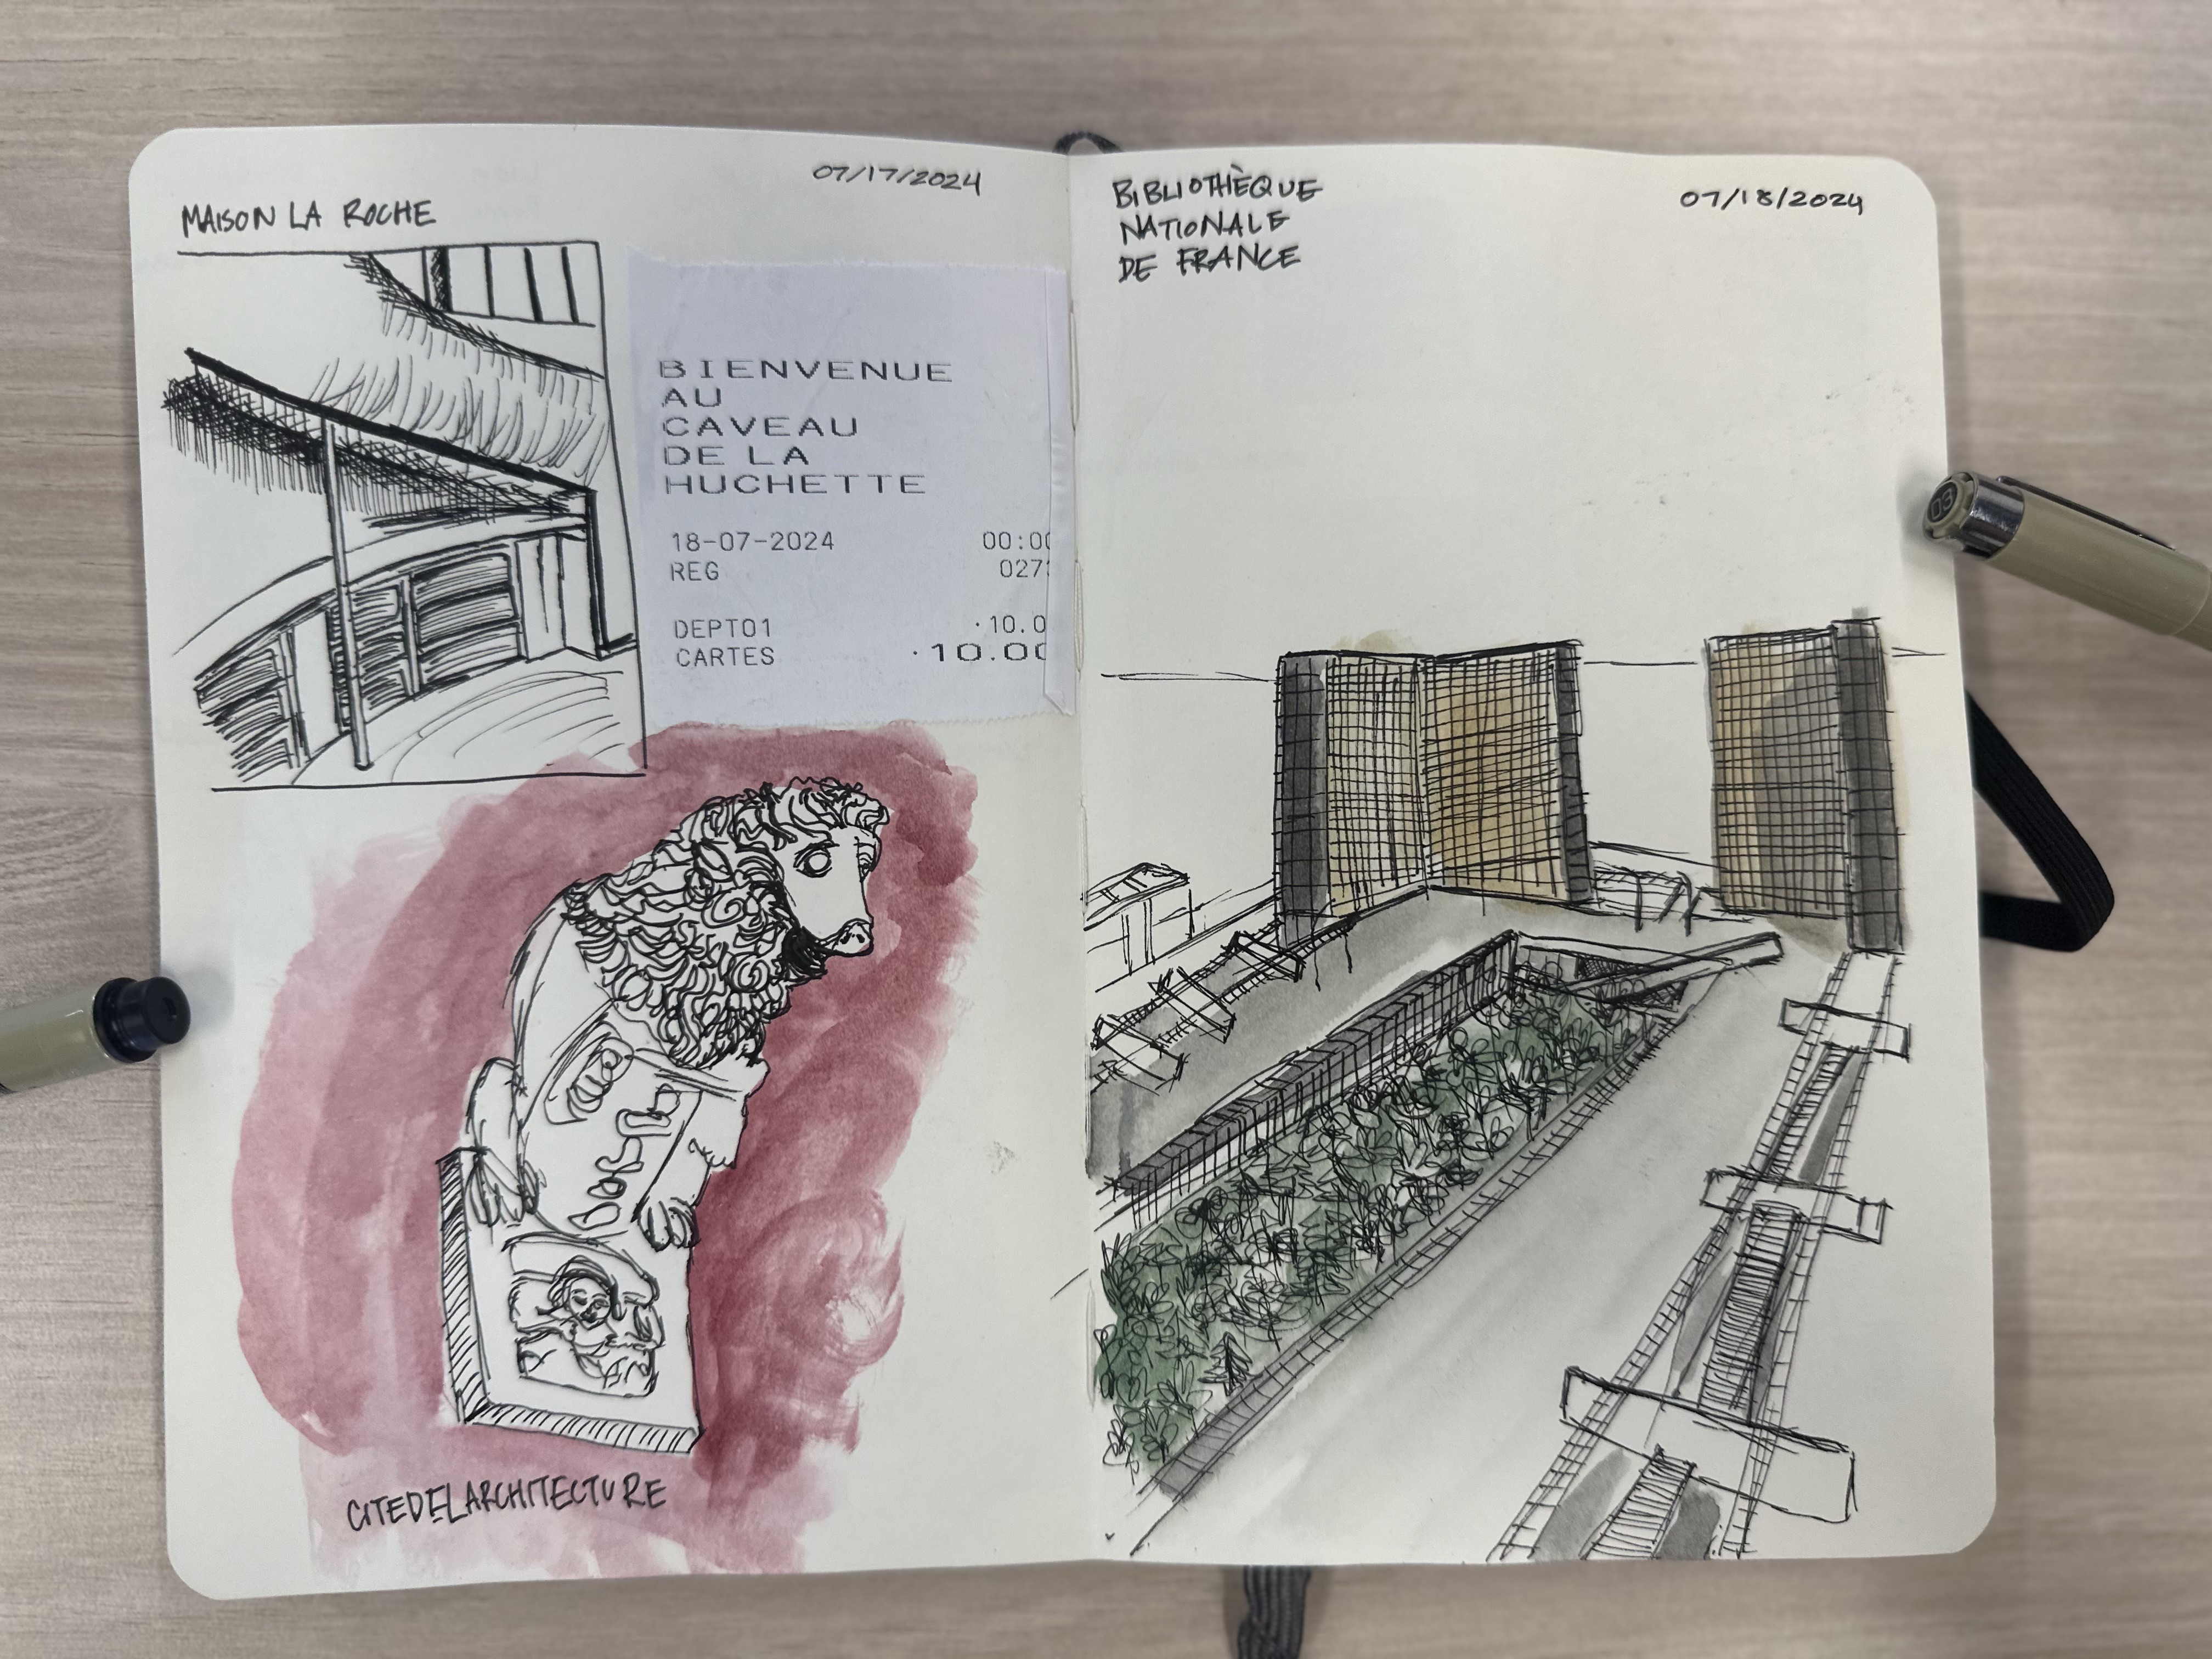 07/17/2024
MAISON LA ROCHE
BIENVENUE
AU
CAVEAU
DE LA
HUCHETTE
18-07-2024 00:00
REG 027
DEPT01 ·10.0
CARTES ·10.00
CITEDELARCHITECTURE
BIBLIOTHÈQUE
NATIONALE
DE FRANCE
07/18/2024
03